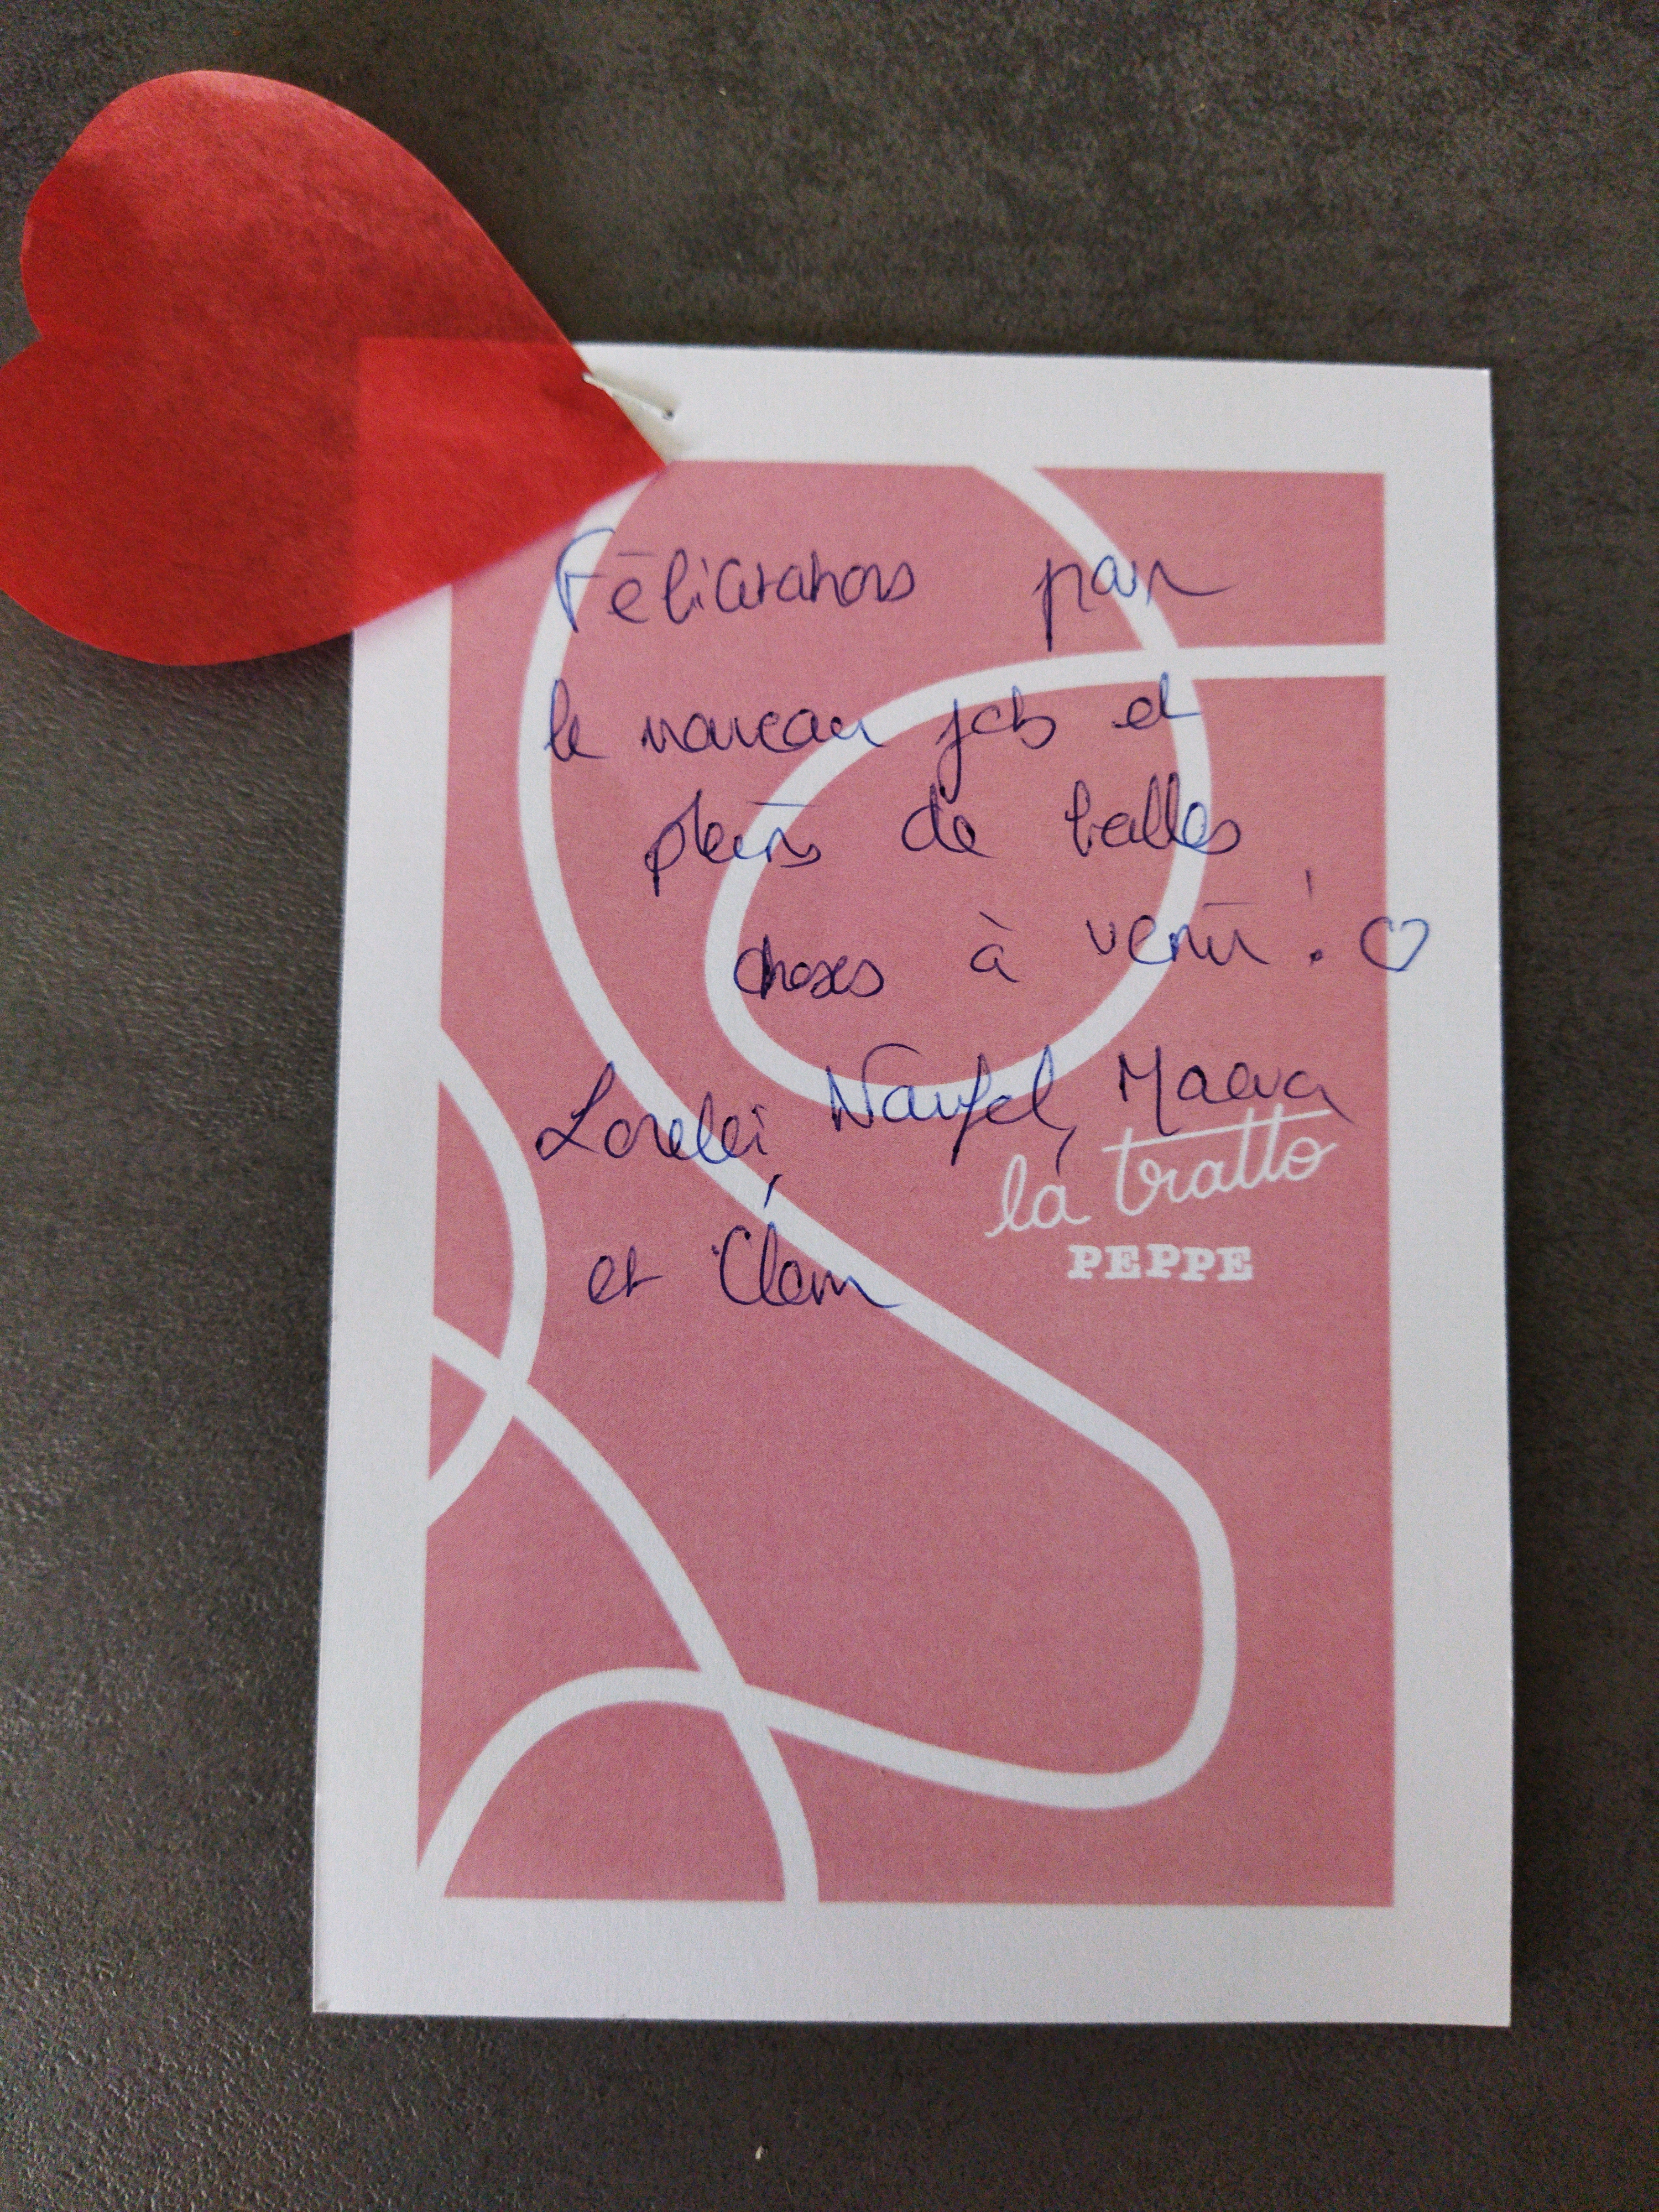 Félicitations pour
le nouveau job et
pleins de belles
choses à venir ! ♡
Lorelei, Naufel, Maeva
la tratto
PEPPE
et Clem